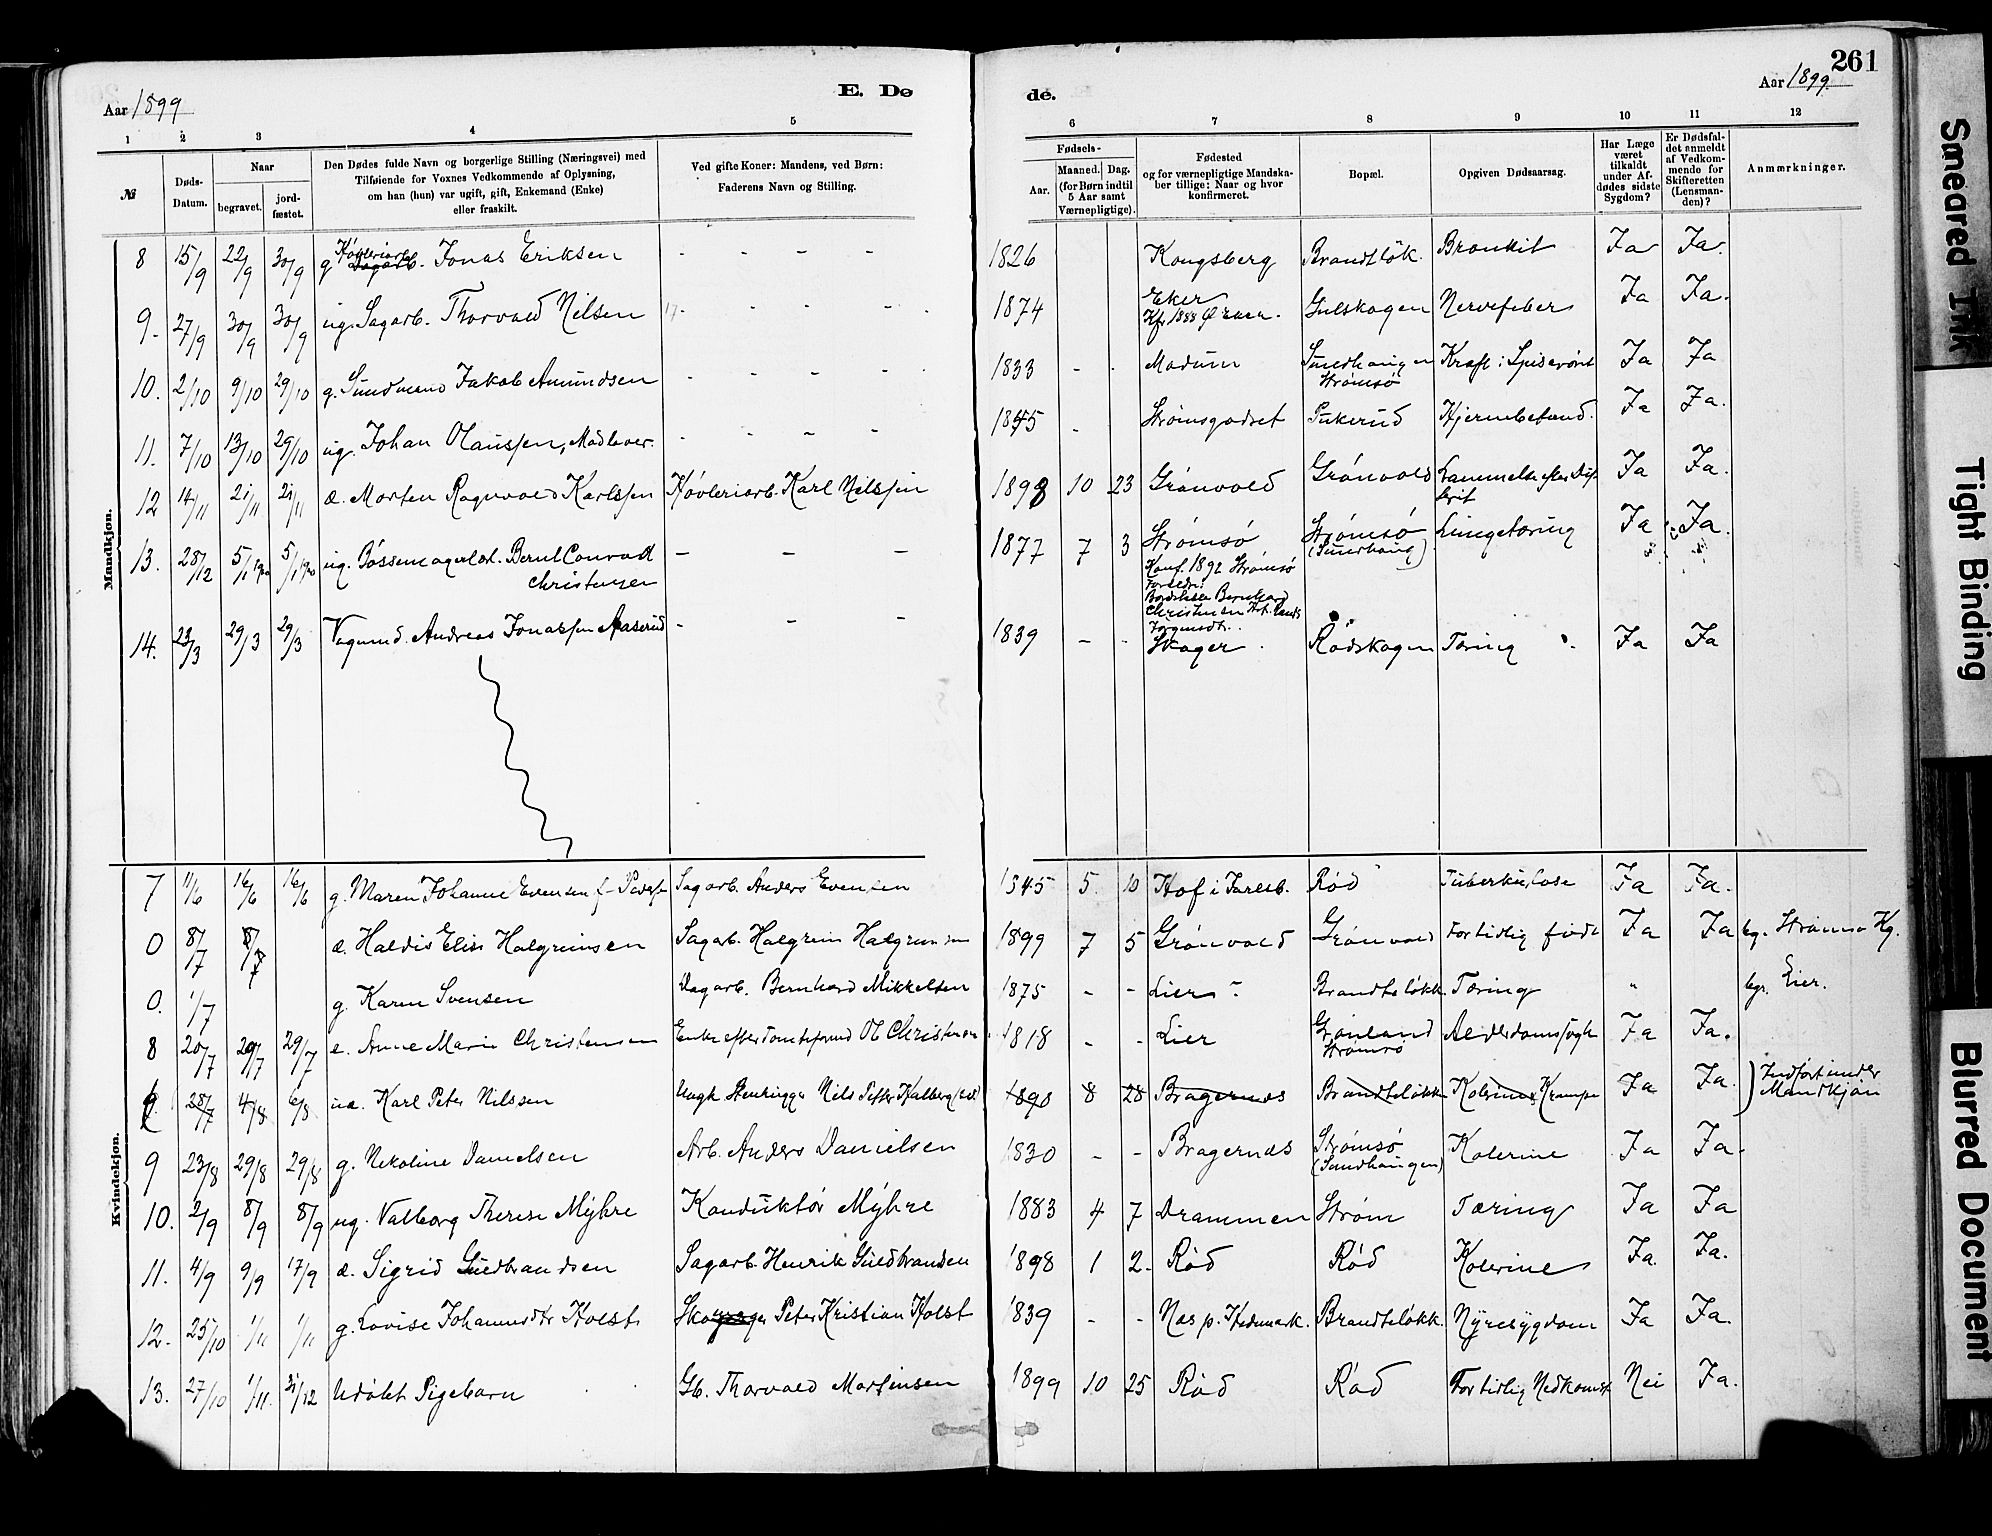 261
Aar 1899
E. Dø
de.
Aar 1899
1 2 3 4 5 6 7 8 9 10 11 12
№
Døds-Datum.
Naar
begravet.
jord-fæstet.
Den Dødes fulde Navn og borgerlige Stilling (Næringsvei) med
Tilføiende for Voxnes Vedkommende af Oplysning,
om han (hun) var ugift, gift, Enkemand (Enke)
eller fraskilt.
Ved gifte Koner: Mandens, ved Børn:
Faderens Navn og Stilling.
Fødsels-
Aar.
Maaned. Dag.
(for Børn indtil
5 Aar samt
Værnepligtige).
Fødested
og for værnepligtige Mandska-
ber tillige: Naar og hvor
konfirmeret.
Bopæl.
Opgiven Dødsaarsag.
Har Læge
været
tilkaldt
under Af-
dødes sidste
Sygdom?
Er Dødsfal-
det anmeldt
af Vedkom-
mende for
Skifteretten
(Lensman-
den)?
Anmærkninger.
Mandkjøn.
8 15/9 22/9 30/9 g Høvleriarb. Jonas Eriksen - - - - 1826 Kongsberg Brandtløk. Bronkit Ja Ja.
9. 27/9 30/9 30/9 ug. Sagarb. Thorvald Nilsen - - - 1874 Eker Gulskogen Nervefeber Ja Ja.
Kfr. 1888
10. 2/10 9/10 29/10 g. Jakob Amundsen - - - - 1833 - - Modum Smedhaugen Kræft i Spiserøret Ja Ja
Strømsø
11. 7/10 13/10 29/10 ug. Johan Olaussen, - - - - 1855 - Strømsgodset Pukerud Hjernebetænd. Ja Ja.
12 14/11 21/11 21/11 æ. Morten Ragnvald Karlssen Høvleriarb. Karl Nilssen 1898 10 23 Grønvold Grønvold Lammelse efter Dif-
terit Ja Ja.
13. 28/12 5/1 1900 5/1 1900 ug. Bøssemagerlærl. Bernt Conrad
Christensen - - - 1877 7 3 Strømsø Strømsø Lungetæring Ja Ja.
(Smedhaug)
Konf. 1892 Strømsø
Forældre:
Bernhard
Christensen
14. 23/3 29/3 29/3 Vognmd. Andreas Jonassen Aaserud - - - 1839 - - Skoger Rødskogen Tæring Ja Ja
Kvindekjøn.
7 11/6 16/6 16/6 g. Maren Johanne Evensen f. Sagarb. Anders Evensen 1845 5 10 Hof i Jarlsb. Rød Tuberkulose Ja Ja.
0 8/7 8/7 æ. Haldis Elise Halgrimsen Sagarb. Halgrim Halgrimsen 1899 7 5 Grønvold Grønvold For tidlig født Ja Ja bg. Strømsø Kg.
0. 1/7 g. Karen Svensen Dagarb. Bernhard Mikkelsen 1875 - - Lier Brandtsløkk. Tæring " bgr. Lier.
8 20/7 29/7 29/7 e. Anne Marie Christensen Enke efter Ol Christensen 1818 - - Lier Grønland Alderdomssvagh Ja Ja.
Strømsø
28/7 4/8 6/8 uæ. Karl Peter Nilssen Ungk. Stenhugger Nils Petter 1898 8 28 Bragernes Brandtsløkk Kolerine Krampe Ja Ja. Indført under
Mandkjøn
9 23/8 29/8 29/8 g. Nikoline Danielsen Arb. Anders Danielsen 1830 - - Bragernæs Strømsø Kolerine Ja Ja.
(Smedhaugen)
10. 2/9 8/9 8/9 ug. Valborg Therese Myhre Konduktør Myhre 1883 4 7 Drammen Strøm Tæring Ja Ja
11. 4/9 9/9 17/9 æ. Sigrid Guldbrandsen Sagarb. Henrik Guldbrandsen 1898 1 2. Rød Rød Kolerine Ja. Ja.
12. 25/10 1/11 1/11 g. Lovise Johannesdtr Holst Peter Kristian Holst 1839 - - Nes p. Hedemark. Brandtsløkk. Nyresygdom Ja Ja.
13. 27/10 1/11. 31/12 Udøbt Pigebarn Gb. Thorvald Mortinsen 1899 10 25 Rød Rød For tidlig Nedkomst Nei Ja.
Smeared Ink
Tight Binding
Blurred Document